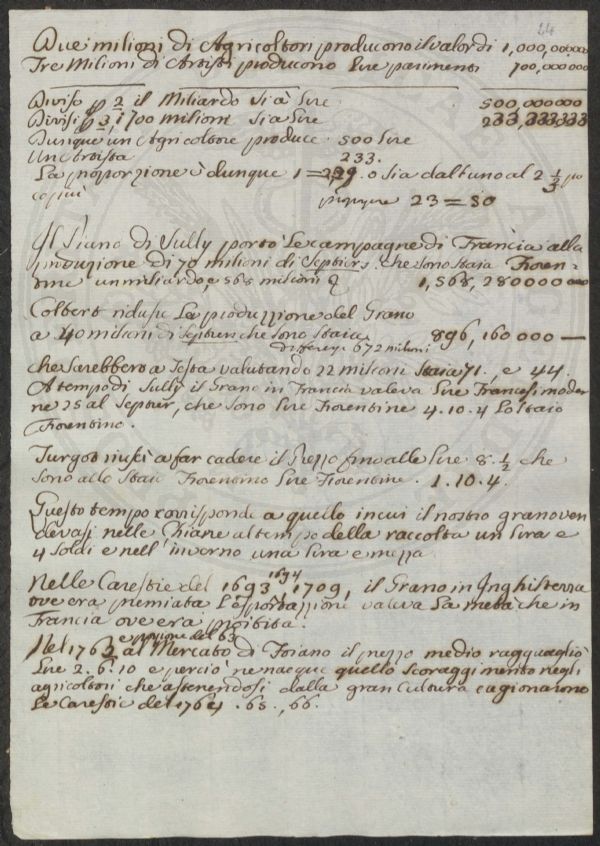 24
Due milioni di Agricoltori producono il valor di 1,000,000000
Tre Milioni di Artisti producono Lire parimenti 700,000000
Diviso p 2 il Miliardo si à Lire 500,000000
Divisi p 3, i 700 milioni sia Lire 233,333333
Dunque un Agricoltore produce 500 Lire
Un Artista 233.
La proporzione è dunque 1 = 2 o sia dall'uno al 2 1/3 po
co più 23 = 50
Il Piano di Sully portò Le campagne di Francia alla
produzione di 70 milioni di Septiers che sono Staia Fioren-
tine un miliardo e 568 milioni 1,568,280000
Colbert ridusse La produzione del Grano
a 40 milioni di Septiers che sono Staia 896,160000 —
differenza 672 milioni
che sarebbero a Testa valutando 22 milioni Staia 71., e 44.
A tempo di Sully il Grano in Francia valeva Lire Francesi moder
ne 25 al Septier, che sono Lire Fiorentine 4.10.4 Lo Staio
Fiorentino.
Turgot riuscì a far cadere il Prezzo fino alle Lire 8. 1/2 che
sono allo Staio Fiorentino Lire Fiorentine. 1.10.4.
Questo tempo corrisponde a quello in cui il nostro grano ven
devasi nelle Chiane al tempo della raccolta un Lira e
4 Soldi e nell'inverno una Lira e mezza
Nelle Carestie del 1693 1694, 1709, il Grano in Inghilterra
ove era premiata L'esportazione valeva La metà che in
Francia ove era proibita.
e porzione del 63
Nel 1762 al Mercato di Foiano il prezzo medio ragguagliò
Lire 2.6.10 e perciò ne nacque quello scoraggimento negli
agricoltori che astenendosi dalla gran Cultura cagionarono
Le Carestie del 1764, .65., 66.